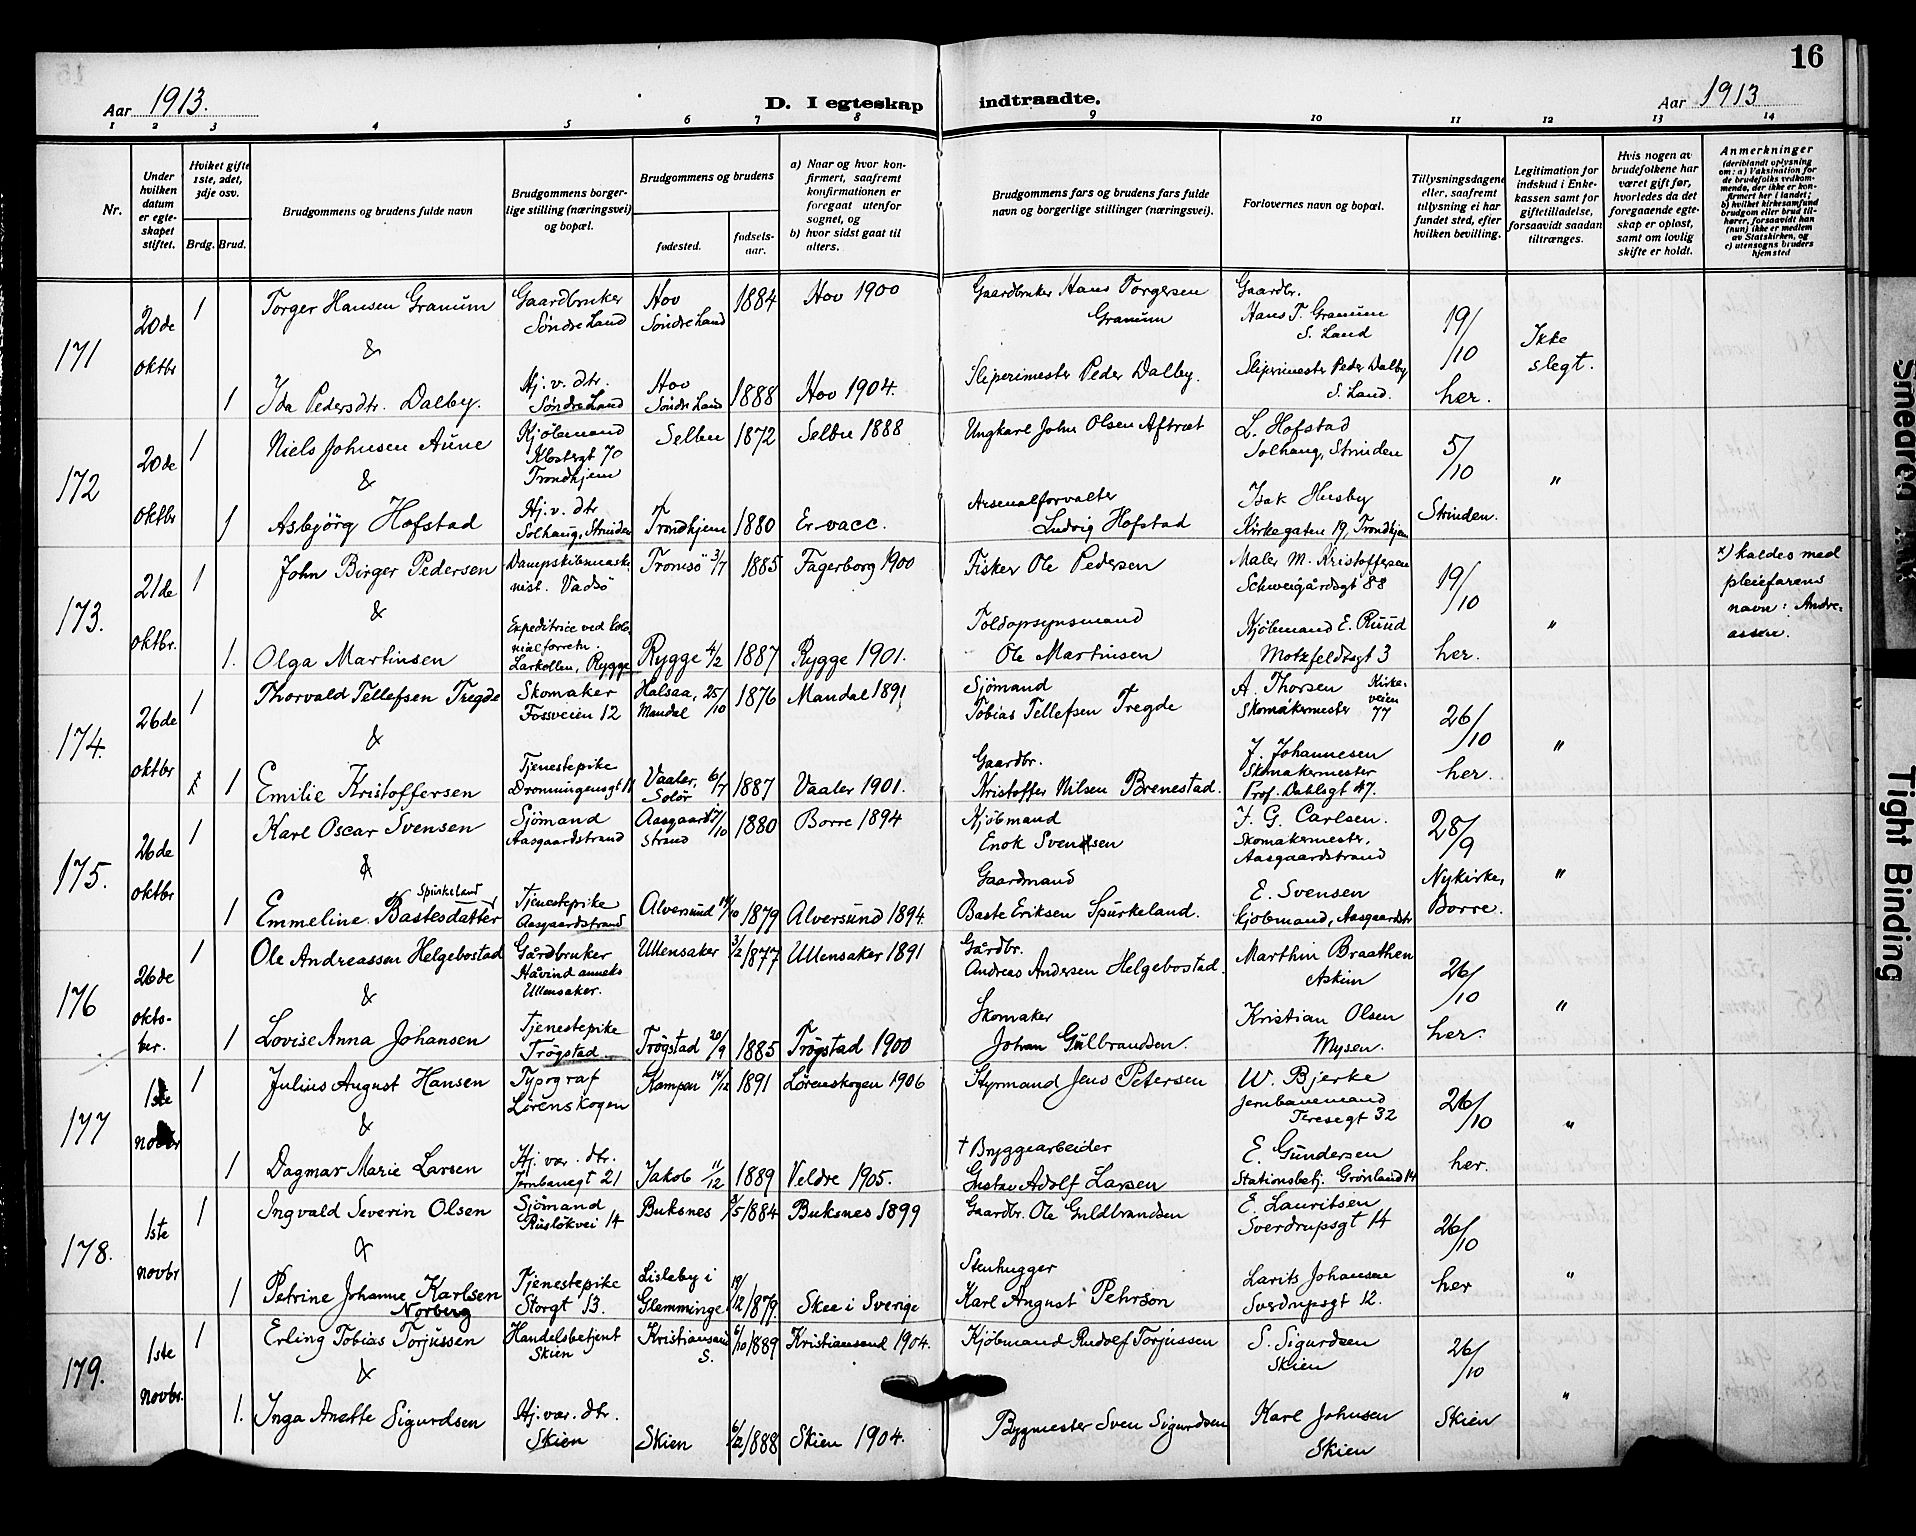 16
Aar 1913.
D. I egteskap indtraadte.
Aar 1913
1 2 3 4 5 6 7 8 9 10 11 12 13 14
Nr.
Under hvilken datum er egteskapet stiftet.
Hviket gifte 1ste, 2det, 3dje osv.
Brdg. Brud.
Brudgommens og brudens fulde navn
Brudgommens borgerlige stilling (næringsvei) og bopæl.
Brudgommens og brudens
fødested. fødselsaar.
a) Naar og hvor konfirmert, saafremt konfirmationen er foregaat utenfor sognet, og
b) hvor sidst gaat til alters.
Brudgommens fars og brudens fars fulde navn og borgerlige stillinger (næringsvei).
Forlovernes navn og bopæl.
Tillysningsdagene eller, saafremt tillysning ei har fundet sted, efter hvilken bevilling.
Legitimation for indskud i Enkekassen samt for giftetilladelse, forsaavidt saadan tiltrænges.
Hvis nogen av brudefolkene har været gift før, hvorledes da det foregaaende egteskap er opløst, samt om lovlig skifte er holdt.
Anmerkninger
(deriblandt oplysning om: a) Vaksination for de brudefolks vedkommende, der ikke er konfirmert her i landet; b) hvilket kirkesamfund brudgom eller brud tilhører, forsaavidt han (hun) ikke er medlem av Statskirken, og c) utensogns bruders hjemsted
171 20de oktbr
1 Torger Hansen Granum Gaardbruker Søndre Land Hov Søndre Land 1884 Hov 1900 Gaardbruker Hans Torgersen Granum Gaardbr. Hans T. Granum S. Land 19/10 her. Ikke slegt.
&
1 Ida Pedersdtr. Dalby. Hj. v. dtr. Søndre Land Hov Søndre Land 1888 Hov 1904. Sliperimester Peder Dalby. Sliperimester Peder Dalby S. Land.
172 20de oktbr
1 Niels Johnsen Aune Kjøbmand Klostergt 70 Trondhjem Selbu 1872 Selbu 1888 Ungkarl John Olsen Aftræt L. Hofstad Solhaug, Strinden 5/10 Strinden. "
&
1 Asbjörg Hofstad Hj. v. dtr Solhaug, Strinden Trondhjem 1880 Er vacc. Arsenalforvalter Ludvig Hofstad Isak Husby Kirkegaten 19, Trondhjem
173. 21de oktbr.
1 John Birger Pedersen Dampskibsmaskinist. Vadsö Tromsö 3/7 1885 Fagerborg 1900 Fisker Ole Pedersen Maler M. Kristoffersen Schweigårdsgt 88 19/10 her. " x) kaldes med pleiefarens navn: Andreassen.
&
1. Olga Martinsen Expeditrice ved kolonialforretn. Larkollen, Rygge Rygge 4/2 1887 Rygge 1901. Toldopsynsmand Ole Martinsen Kjöbmand E. Ruud Motzfeldtsgt 3
174. 26de oktbr
1 Thorvald Tellefsen Tregde Skomaker Fossveien 12 Halsaa, Mandal 25/10 1876 Mandal 1891 Sjömand Tobias Tellefsen Tregde A. Thorsen Skomakermester Kirkeveien 77 26/10 her. "
&
1 Emilie Kristoffersen Tjenestepike Dronningensgt 11 Vaaler, Solör 6/7 1887 Vaaler 1901. Gaardbr. Kristoffer Nilsen Brenestad. J. Johannesen Skomakermester Prof. Dahlsgt 47.
175. 26de oktbr
1 Karl Oscar Svensen Sjömand Aasgaardstrand Aasgaardstrand 17/10 1880 Borre 1894 Kjöbmand Enok Svendsen J. G. Carlsen. Skomakermester, Aasgaardstrand 28/9 Nykirke, Borre. "
&
1 Emmeline Bastesdatter Spurkeland Tjenestepike Aasgaardstrand Alversund 14/10 1879 Alversund 1894. Gaardmand Baste Eriksen Spurkeland. E. Svensen Kjöbmand, Aasgaardstr
176 26de oktober.
1 Ole Andreassen Helgebostad Gårdbruker Håvind anneks Ullensaker. Ullensaker 3/2 1877 Ullensaker 1891 Gårdbr. Andreas Andersen Helgebostad. Marthin Braathen Askim 26/10 her. "
&
1 Lovise Anna Johansen Tjenestepike Trögstad Trögstad 20/9 1885 Trögstad 1900 Skomaker Johan Gulbrandsen. Kristian Olsen Mysen.
177 1ste novbr
1 Julius August Hansen Typograf Lörenskogen Kampen 14/12 1891 Lörenskogen 1906 Styrmand Jens Petersen W. Bjerke Jernbanemand Teresegt 32 26/10 her. "
&
1 Dagmar Marie Larsen Hj. vær. dtr. Jernbanegt 21 Jakob 11/12 1889 Veldre 1905. † Bryggearbeider Gustav Adolf Larsen E. Gundersen Stationsbetj. Grönland 14
178. 1ste novbr
1 Ingvald Severin Olsen Sjömand Ruslökvei 14 Buksnes /5 1884 Buksnes 1899 Gaardbr. Ole Guldbrandsen E. Lauritsen Sverdrupsgt 14 26/10 her "
&
1 Petrine Johanne Karlsen Norberg Tjenestepike Storgt 13. Lisleby i Glemminge 19/12 1879. Skee i Sverige Stenhugger Karl August Pehrson Larits Johansen Sverdrupsgt 12.
179. 1ste novbr.
1 Erling Tobias Torjussen Handelsbetjent Skien Kristiansand S. 6/10 1889 Kristiansand 1904. Kjöbmand Rudolf Torjussen S. Sigurdsen Skien 26/10 Skien "
&
1. Inga Anette Sigurdsen Hj. vær. dtr. Skien Skien 6/2 1888 Skien 1904. Bygmester Sven Sigurdsen Karl Johnsen Skien
Smeared
Tight Binding